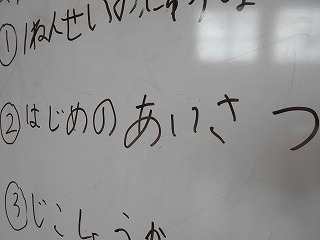 ①1ねんせいの
②はじめのあいさつ
③じこしょうか